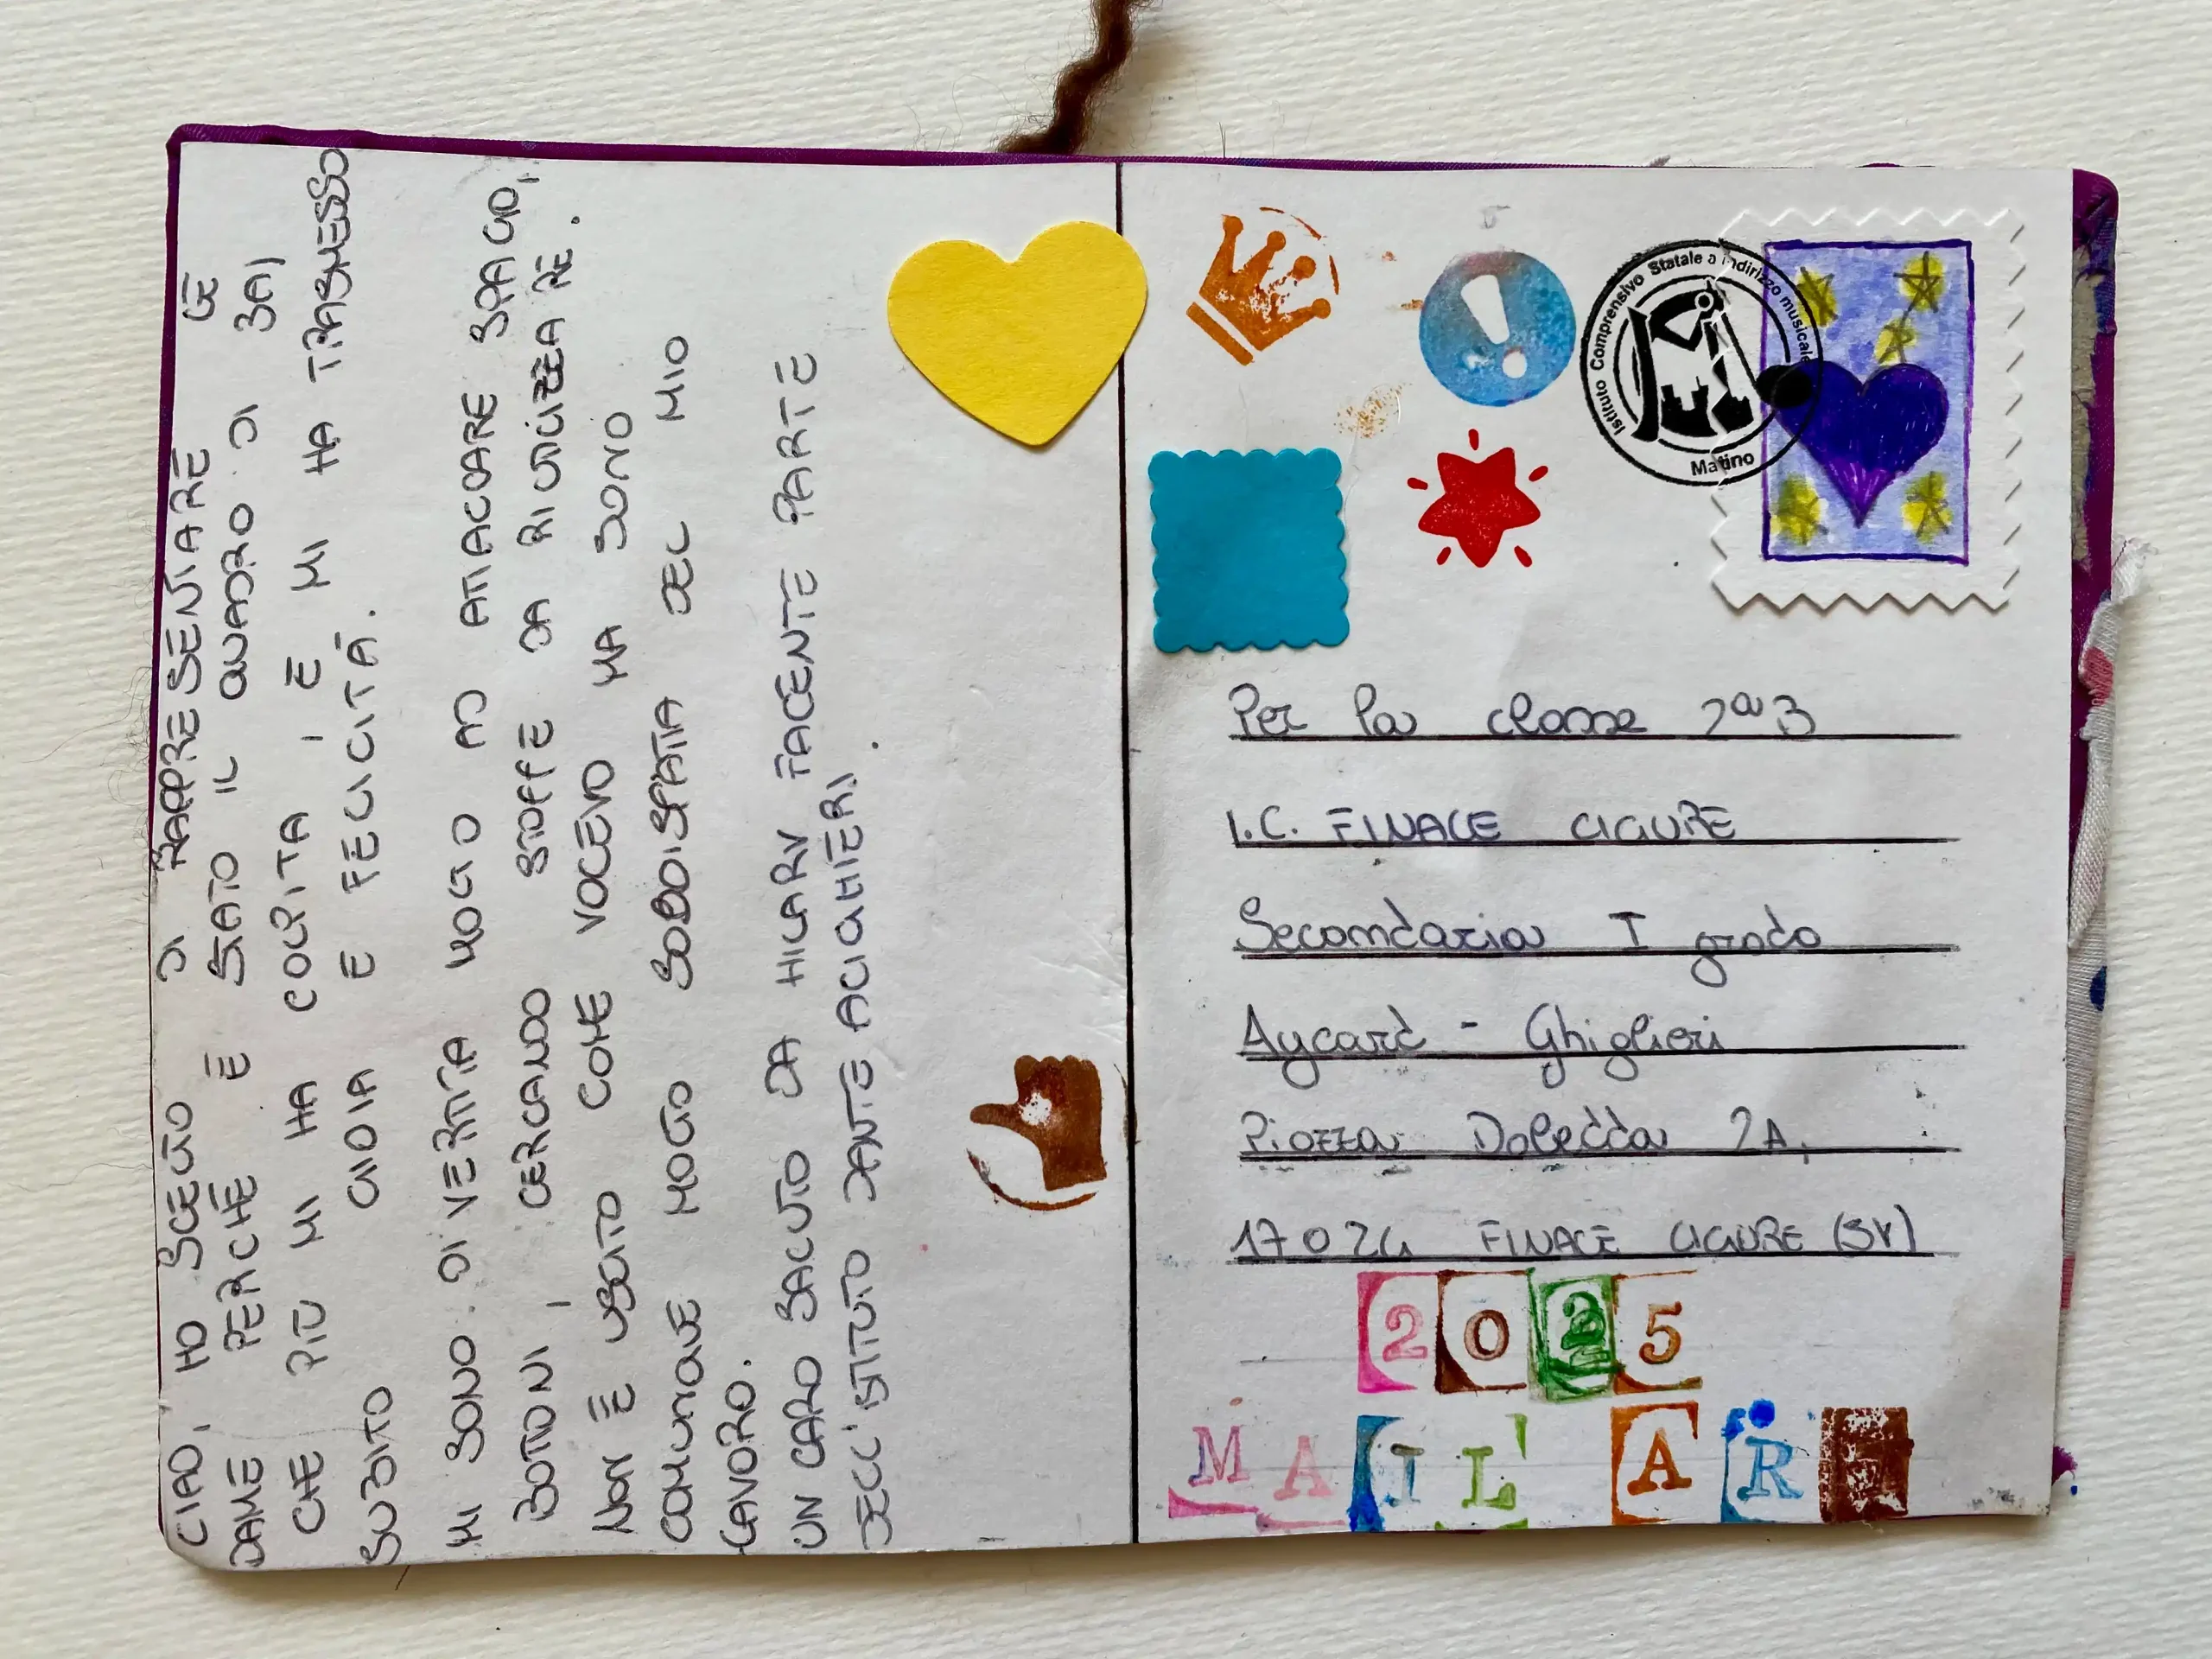 CIAO, HO SCELTO DI RAPPRESENTARE LE
DAME PERCHÈ È STATO IL QUADRO DI BAJ
CHE PIÙ MI HA COLPITA, E MI HA TRASMESSO
SUBITO GIOIA E FELICITÀ.
MI SONO DIVERTITA MOLTO AD ATTACCARE SPAGO,
BOTTONI, CERCANDO STOFFE DA RIUTILIZZARE.
NON È USCITO COME VOLEVO MA SONO
COMUNQUE MOLTO SODDISFATTA DEL MIO
LAVORO.
UN CARO SALUTO DA HILARY FACENTE PARTE
DELL'ISTITUTO DANTE ALIGHIERI.
Istituto Comprensivo Statale a indirizzo musicale
Matino
Per la classe 2ªB
I.C. FINALE LIGURE
Secondaria I grado
Aycard - Ghiglieri
Piazza Doledda 2A,
17024 FINALE LIGURE (SV)
2025
MAIL AR